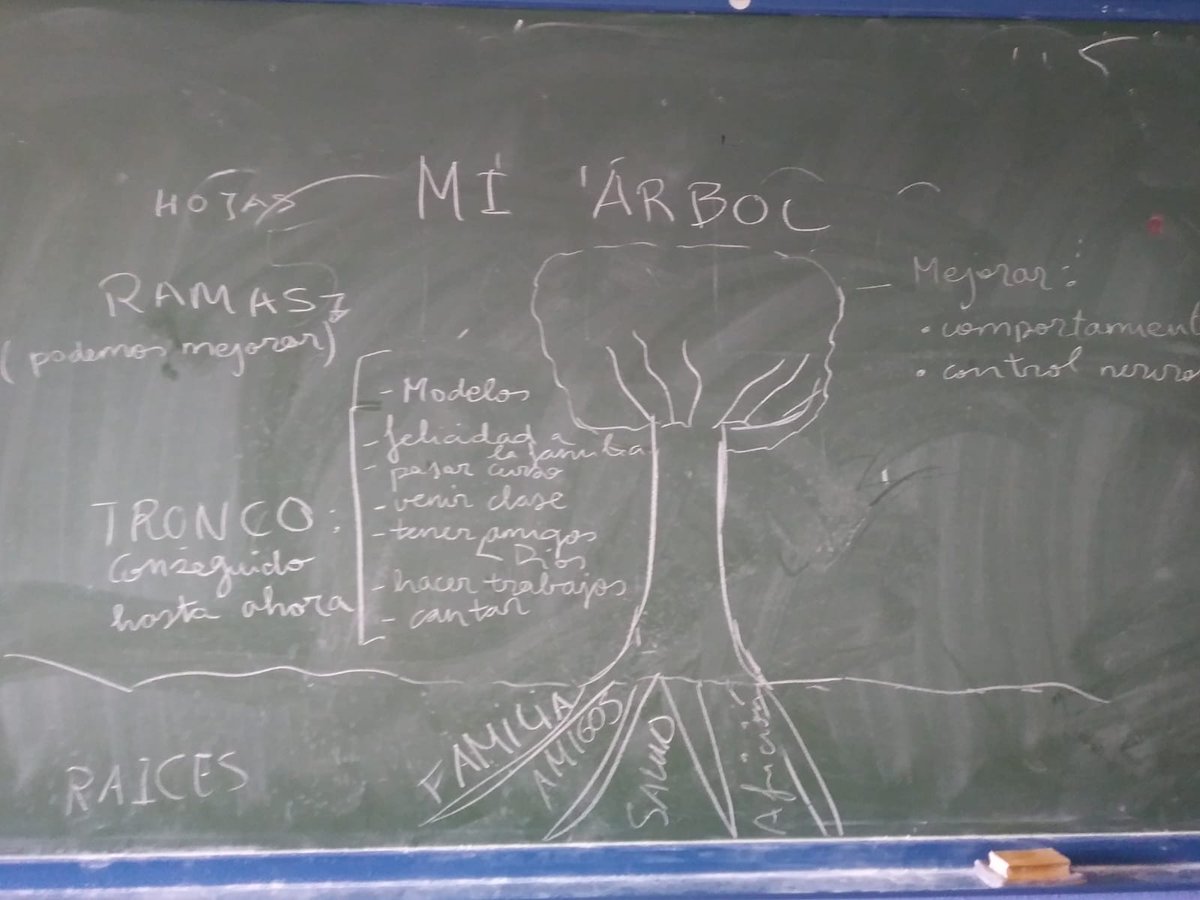 MI ÁRBOL
HOJAS
RAMAS
(podemos mejorar)
Mejorar:
• comportamient
• control nervio
TRONCO:
conseguido
hasta ahora
- Modelos
- felicidad a
la familia
- pasar curso
- venir clase
- tener amigos
Dios
- hacer trabajos
- cantar
RAICES
FAMILIA
AMIGOS
SALUD
Afición